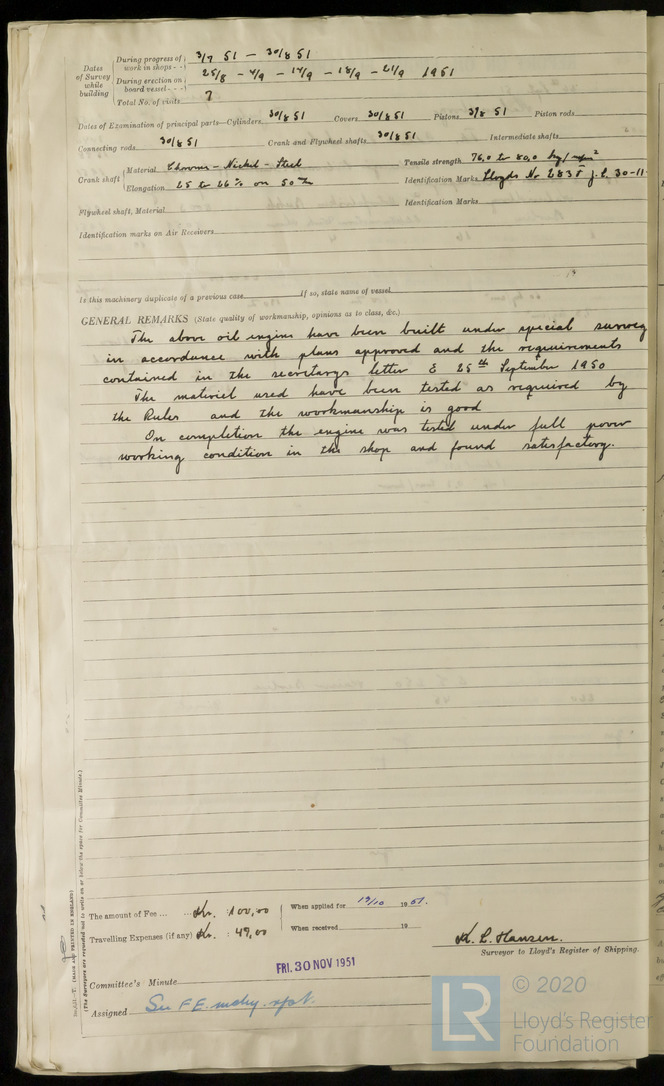 Dates of Survey while building
During progress of work in shops - - 3/7 51 — 30/8 51
During erection on board vessel - - - 25/8 - 4/9 - 14/9 - 18/9 - 21/9 1951
Total No. of visits 7
Dates of Examination of principal parts—Cylinders 30/8 51 Covers 30/8 51 Pistons 3/8 51 Piston rods
Connecting rods 30/8 51 Crank and Flywheel shafts 30/8 51 Intermediate shafts
Crank shaft Material Chrome - Nickel - Steel Tensile strength 76,0 to 80,0 kg/mm²
Elongation 25 to 26% on 50 Identification Marks Lloyds No 2835 30-11
Flywheel shaft, Material Identification Marks
Identification marks on Air Receivers
Is this machinery duplicate of a previous case If so, state name of vessel
GENERAL REMARKS (State quality of workmanship, opinions as to class, &c.)
The above oil engine have been built under special survey
in accordance with plans approved and the requirements
contained in the secretarys letter E 25th September 1950
The material used have been tested as required by
the Rules and the workmanship is good
On completion the engine was tested under full power
working condition in the shop and found satisfactory.
(MADE AND PRINTED IN ENGLAND)
(The Surveyors are requested not to write on or below the space for Committee Minute.)
The amount of Fee ... ... Kr. : 100,00 When applied for 19/10 1951.
Travelling Expenses (if any) Kr. : 49,00 When received 19
K. L. Hansen.
Surveyor to Lloyd's Register of Shipping.
FRI. 30 NOV 1951
Committee's Minute
Assigned See F.E. mchy. rpt.
LR © 2020
Lloyd's Register
Foundation